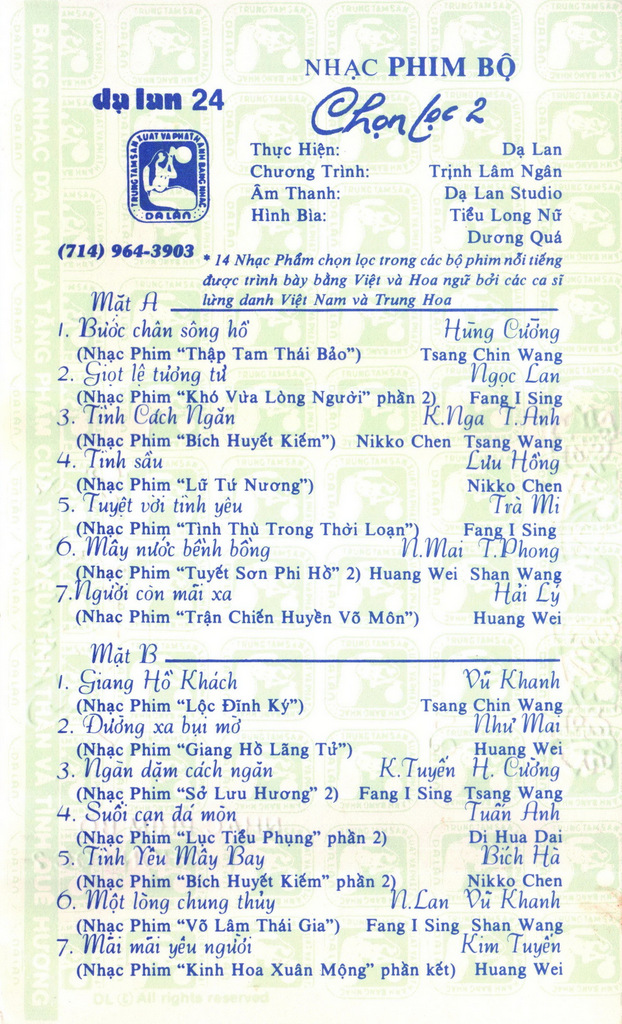 NHẠC PHIM BỘ
dạ lan 24
Chọn lọc 2
TRUNG TAM SAN XUAT VA PHAT HANH BANG NHAC
DẠ LAN
Thực Hiện: Dạ Lan
Chương Trình: Trịnh Lâm Ngân
Âm Thanh: Dạ Lan Studio
Hình Bìa: Tiểu Long Nữ
Dương Quá
(714) 964-3903
* 14 Nhạc Phẩm chọn lọc trong các bộ phim nổi tiếng
được trình bày bằng Việt và Hoa ngữ bởi các ca sĩ
lừng danh Việt Nam và Trung Hoa
Mặt A
1. Bước chân sông hồ Hùng Cường
(Nhạc Phim “Thập Tam Thái Bảo”) Tsang Chin Wang
2. Giọt lệ tương tư Ngọc Lan
(Nhạc Phim “Khó Vừa Lòng Người” phần 2) Fang I Sing
3. Tình Cách Ngăn K.Nga T.Anh
(Nhạc Phim “Bích Huyết Kiếm”) Nikko Chen Tsang Wang
4. Tình sầu Lưu Hồng
(Nhạc Phim “Lữ Tứ Nương”) Nikko Chen
5. Tuyệt vời tình yêu Trà Mi
(Nhạc Phim “Tình Thù Trong Thời Loạn”) Fang I Sing
6. Mây nước bềnh bồng N.Mai T.Phong
(Nhạc Phim “Tuyết Sơn Phi Hồ” 2) Huang Wei Shan Wang
7. Người còn mãi xa Hải Lý
(Nhac Phim “Trận Chiến Huyền Võ Môn”) Huang Wei
Mặt B
1. Giang Hồ Khách Vũ Khanh
(Nhạc Phim “Lộc Đỉnh Ký”) Tsang Chin Wang
2. Đường xa bụi mờ Như Mai
(Nhạc Phim “Giang Hồ Lãng Tử”) Huang Wei
3. Ngàn dặm cách ngăn K.Tuyến H. Cường
(Nhạc Phim “Sở Lưu Hương” 2) Fang I Sing Tsang Wang
4. Suối cạn đá mòn Tuấn Anh
(Nhạc Phim “Lục Tiểu Phụng” phần 2) Di Hua Dai
5. Tình Yêu Mây Bay Bích Hà
(Nhạc Phim “Bích Huyết Kiếm” phần 2) Nikko Chen
6. Một lòng chung thủy N.Lan Vũ Khanh
(Nhạc Phim “Võ Lâm Thái Gia”) Fang I Sing Shan Wang
7. Mãi mãi yêu người Kim Tuyến
(Nhạc Phim “Kinh Hoa Xuân Mộng” phần kết) Huang Wei
DL © All rights reserved